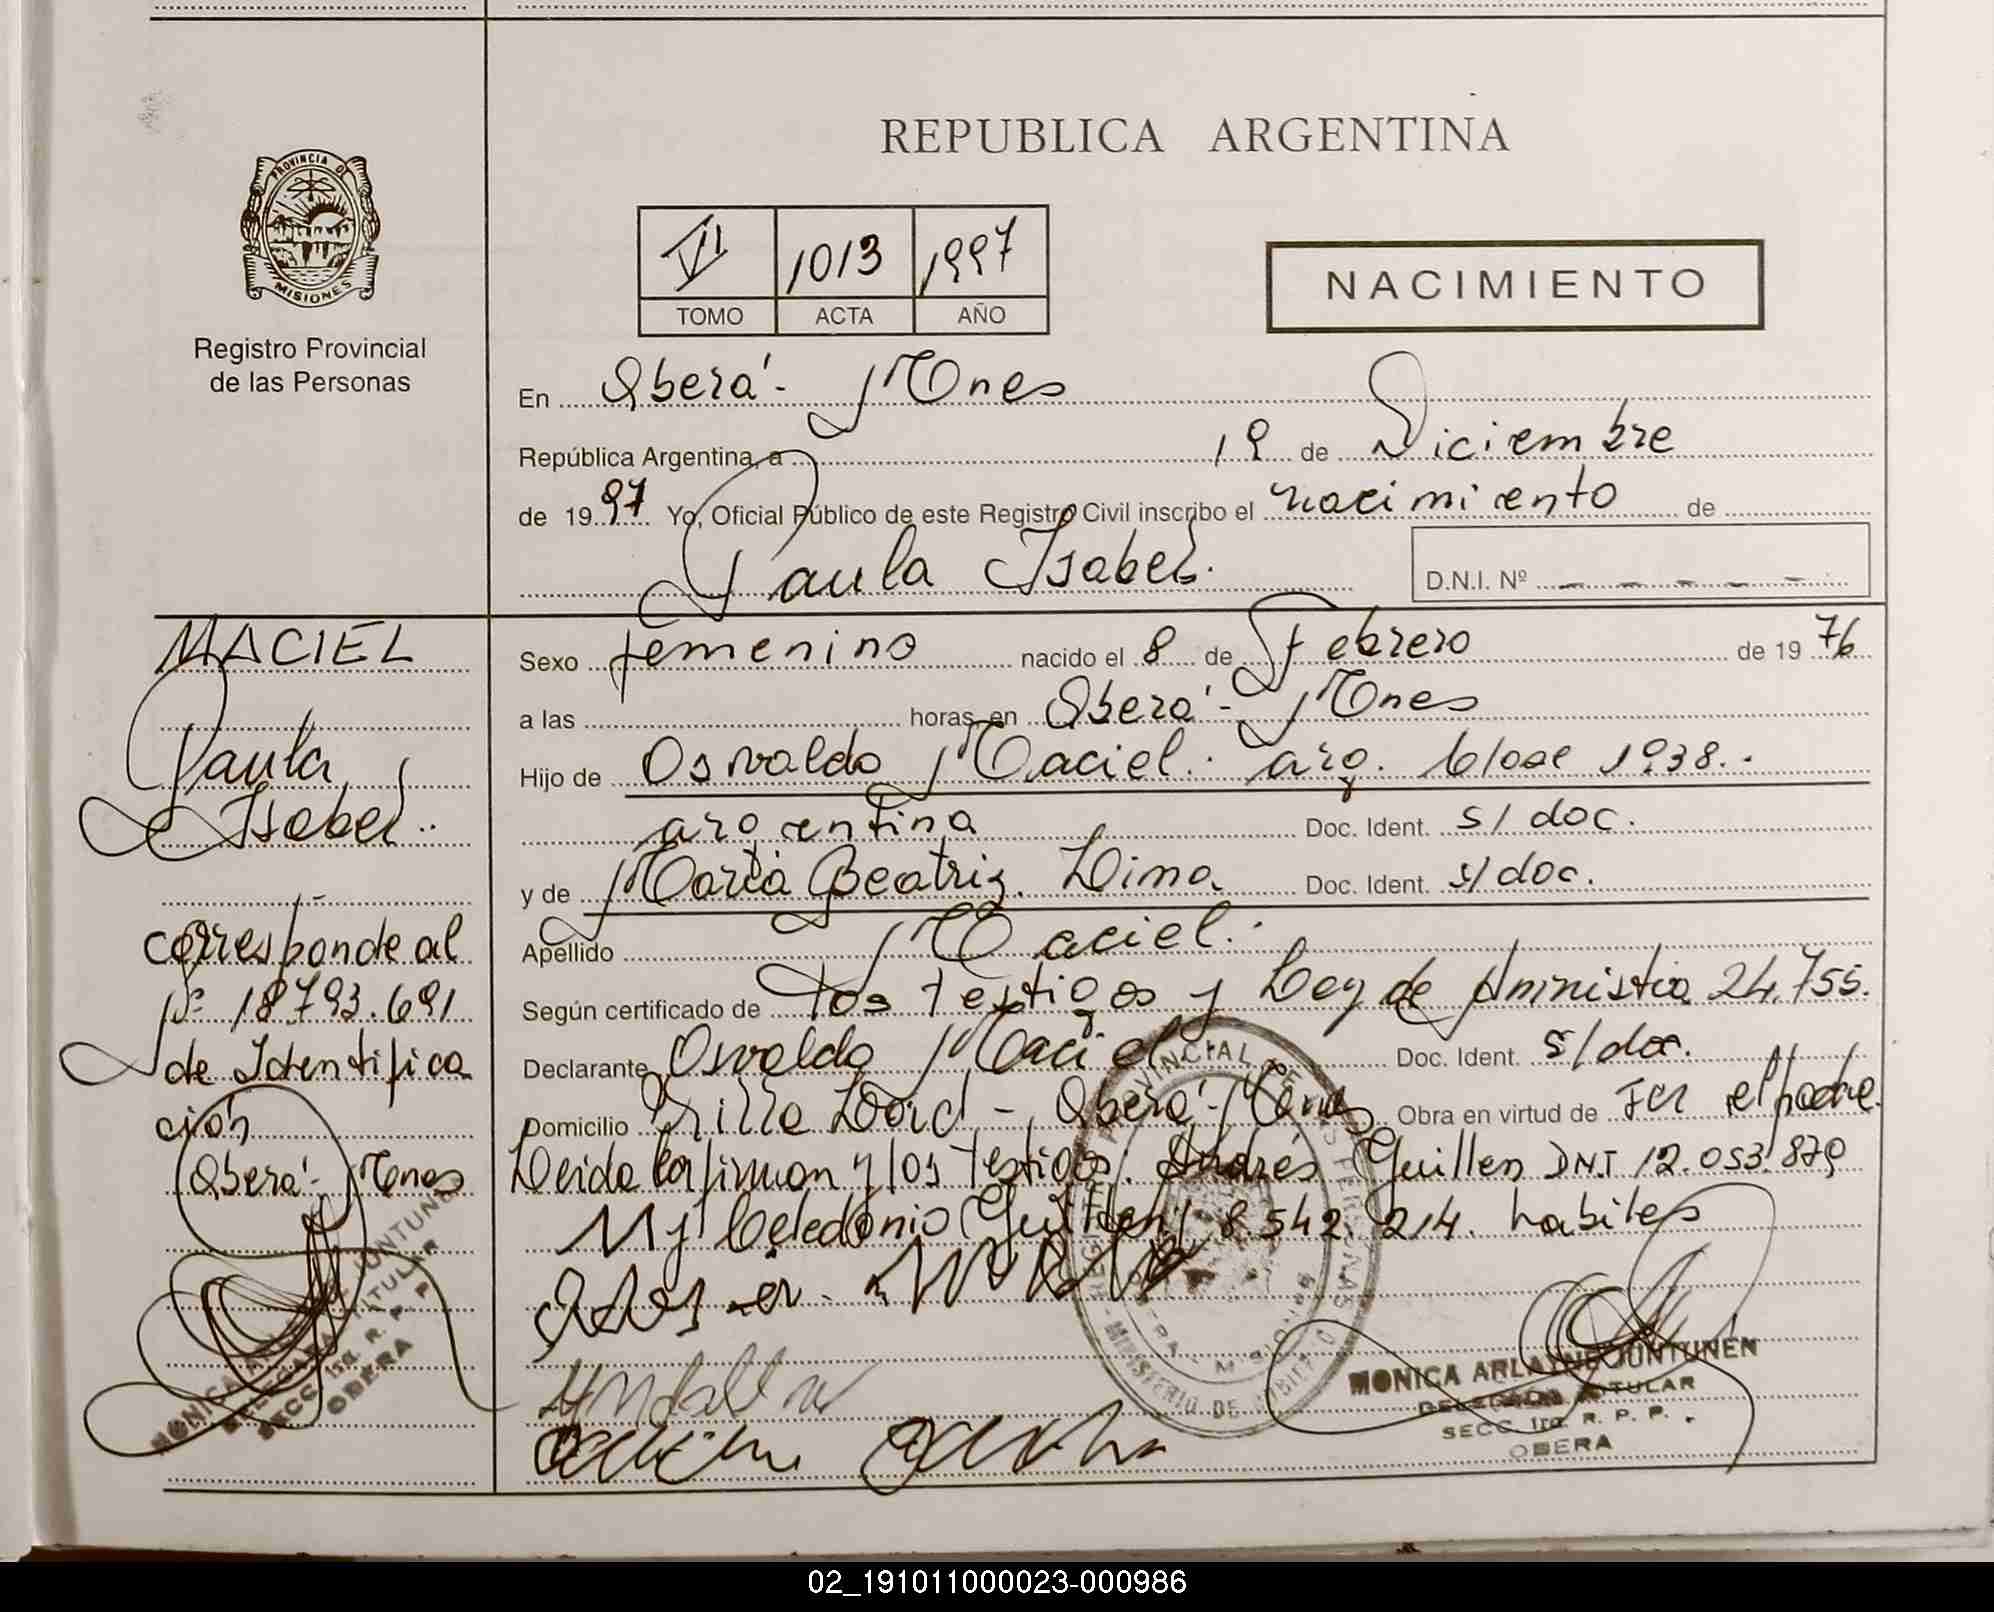 REPUBLICA ARGENTINA
PROVINCIA DE
MISIONES
Registro Provincial
de las Personas
VI 1013 1997
TOMO ACTA AÑO
NACIMIENTO
En Oberá - Mnes
República Argentina, a 19 de Diciembre
de 1997 Yo, Oficial Público de este Registro Civil inscribo el nacimiento de
Paula Isabel.
D.N.I. Nº - - - - -
MACIEL
Paula
Isabel..
corresponde al
Nº 18793.691
de Identifica
ción
Oberá - Mnes
MONICA ARLAYNE JUNTUNEN
DELEGADA TITULAR
SECC. 1ra. R. P. P.
OBERA
Sexo femenino nacido el 8 de Febrero de 1976
a las horas, en Oberá - Mnes
Hijo de Osvaldo Maciel.. arg. Clase 1938..
argentina Doc. Ident. s/doc.
y de María Beatriz Lima Doc. Ident. s/doc.
Apellido Maciel..
Según certificado de Dos testigos y Ley de Amnistia 24.755.
Declarante Osvaldo Maciel Doc. Ident. s/doc.
Domicilio Villa Lord - Oberá - Mnes Obra en virtud de ser el padre.
Leida la firman y los testigos. Andrés Guillen DNI 12.053.879
M y Celedonio Guillen 8.542.214. habiles
MONICA ARLAYNE JUNTUNEN
DELEGADA TITULAR
SECC. 1ra. R. P. P.
OBERA
02_191011000023-000986